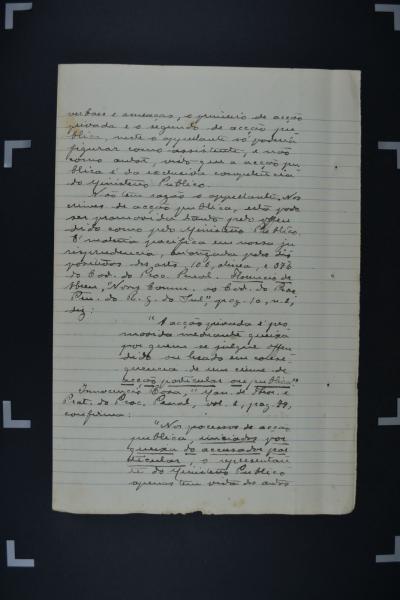 verbaes e ameaças, o primeiro de acção
privada e o segundo de acção pu-
blica, neste o appellante só poderia
figurar como assistente, e não
como autor, visto que a acção pu-
blica é da exclusiva competencia
do Ministerio Publico.
Não tem razão o appellante. Nos
crimes de acção publica, esta pode
ser promovida tanto pelo offen-
dido como pelo Ministerio Publico.
É materia pacifica em nossa ju-
risprudencia, autorizada pelos dis-
positivos dos arts. 106, alinea, e 376
do Cod. do Proc. Penal. Florencio de
Abreu, "Nova Comm. ao Cod. do Proc.
Pen. do R. G. do Sul", pag. 10, n. 2,
diz:
"A acção privada é pro-
movida mediante queixa
por quem se julgue offen-
dido ou lesado em conse-
quencia de um crime de
acção particular ou publica".
Innocencio Rosa, "Man. de Theor. e
Prat. do Proc. Penal, vol. 1, pag.
confirma:
"Nos processos de acção
publica, iniciados por
queixa do accusador par-
ticular, o representan-
te do Ministerio Publico
apenas tem vista dos autos